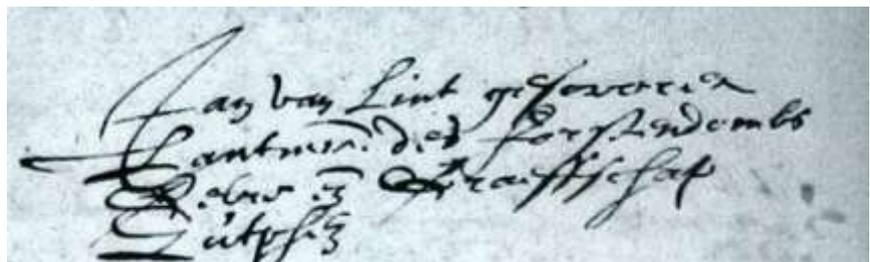 Jan van Lint gesworen
Lantmr. des forstendombs
Gelre en Graeffschap
Zutphen